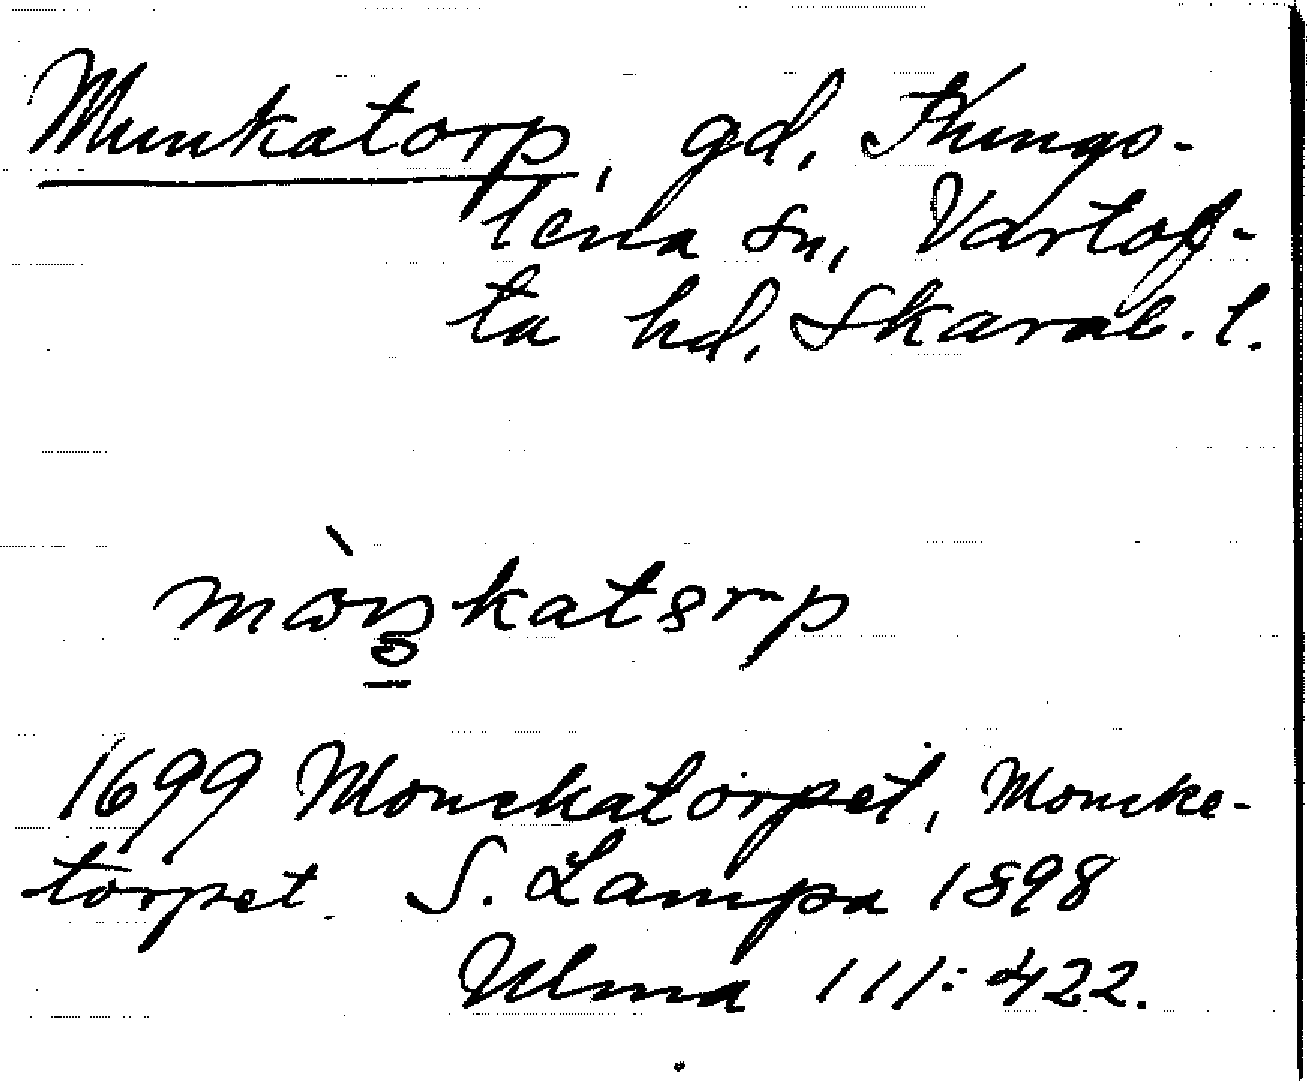 Munkatorp, gd, Kungs-
lena sn, Vartof-
ta hd, Skarab. l.
1699 Monckatorpet, Moncke-
torpet. S. Lampa 1898
Ulma 111:422.